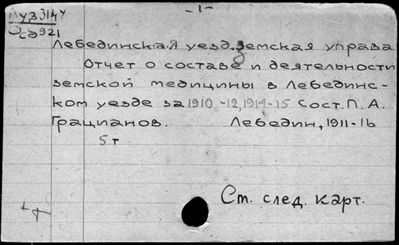 - 1 -
Уз314У
Сд921
Лебединская уезд. Земская управа
Отчет о составе и деятельности
земской медицины в Лебединс-
ком уезде за 1910-12, 1914-15 Сост. П. А.
Грацианов. Лебедин, 1911-16
5 т
См. след. карт.